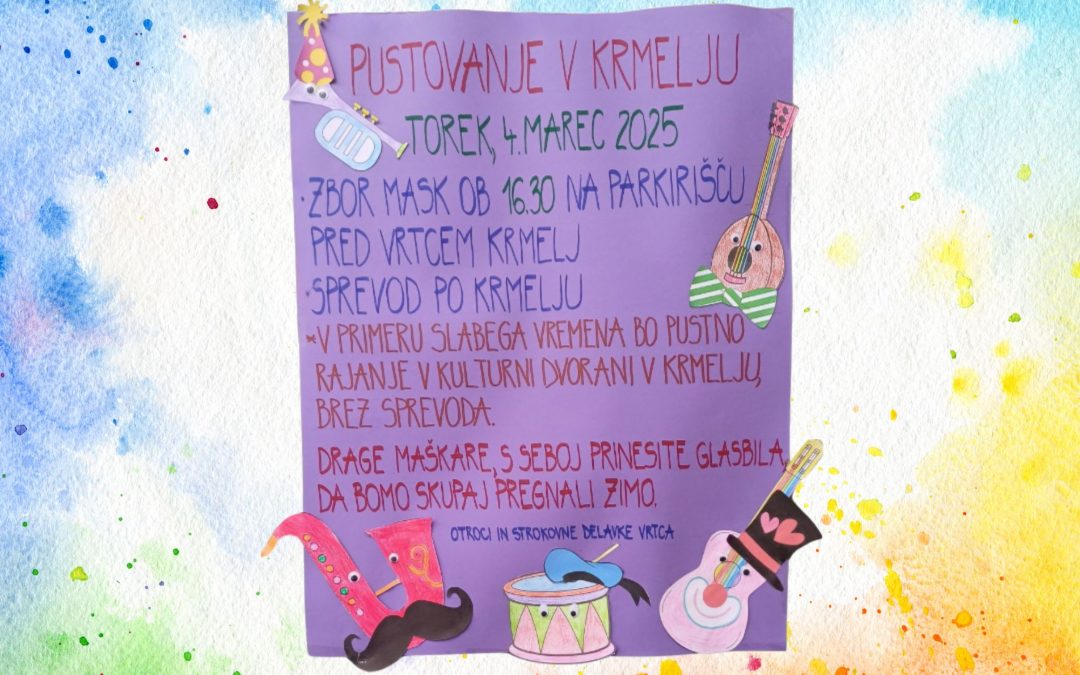 PUSTOVANJE V KRMELJU
TOREK, 4. MAREC 2025
• ZBOR MASK OB 16.30 NA PARKIRIŠČU
PRED VRTCEM KRMELJ
• SPREVOD PO KRMELJU
* V PRIMERU SLABEGA VREMENA BO PUSTNO
RAJANJE V KULTURNI DVORANI V KRMELJU,
BREZ SPREVODA.
DRAGE MAŠKARE, S SEBOJ PRINESITE GLASBILA,
DA BOMO SKUPAJ PREGNALI ZIMO.
OTROCI IN STROKOVNE DELAVKE VRTCA